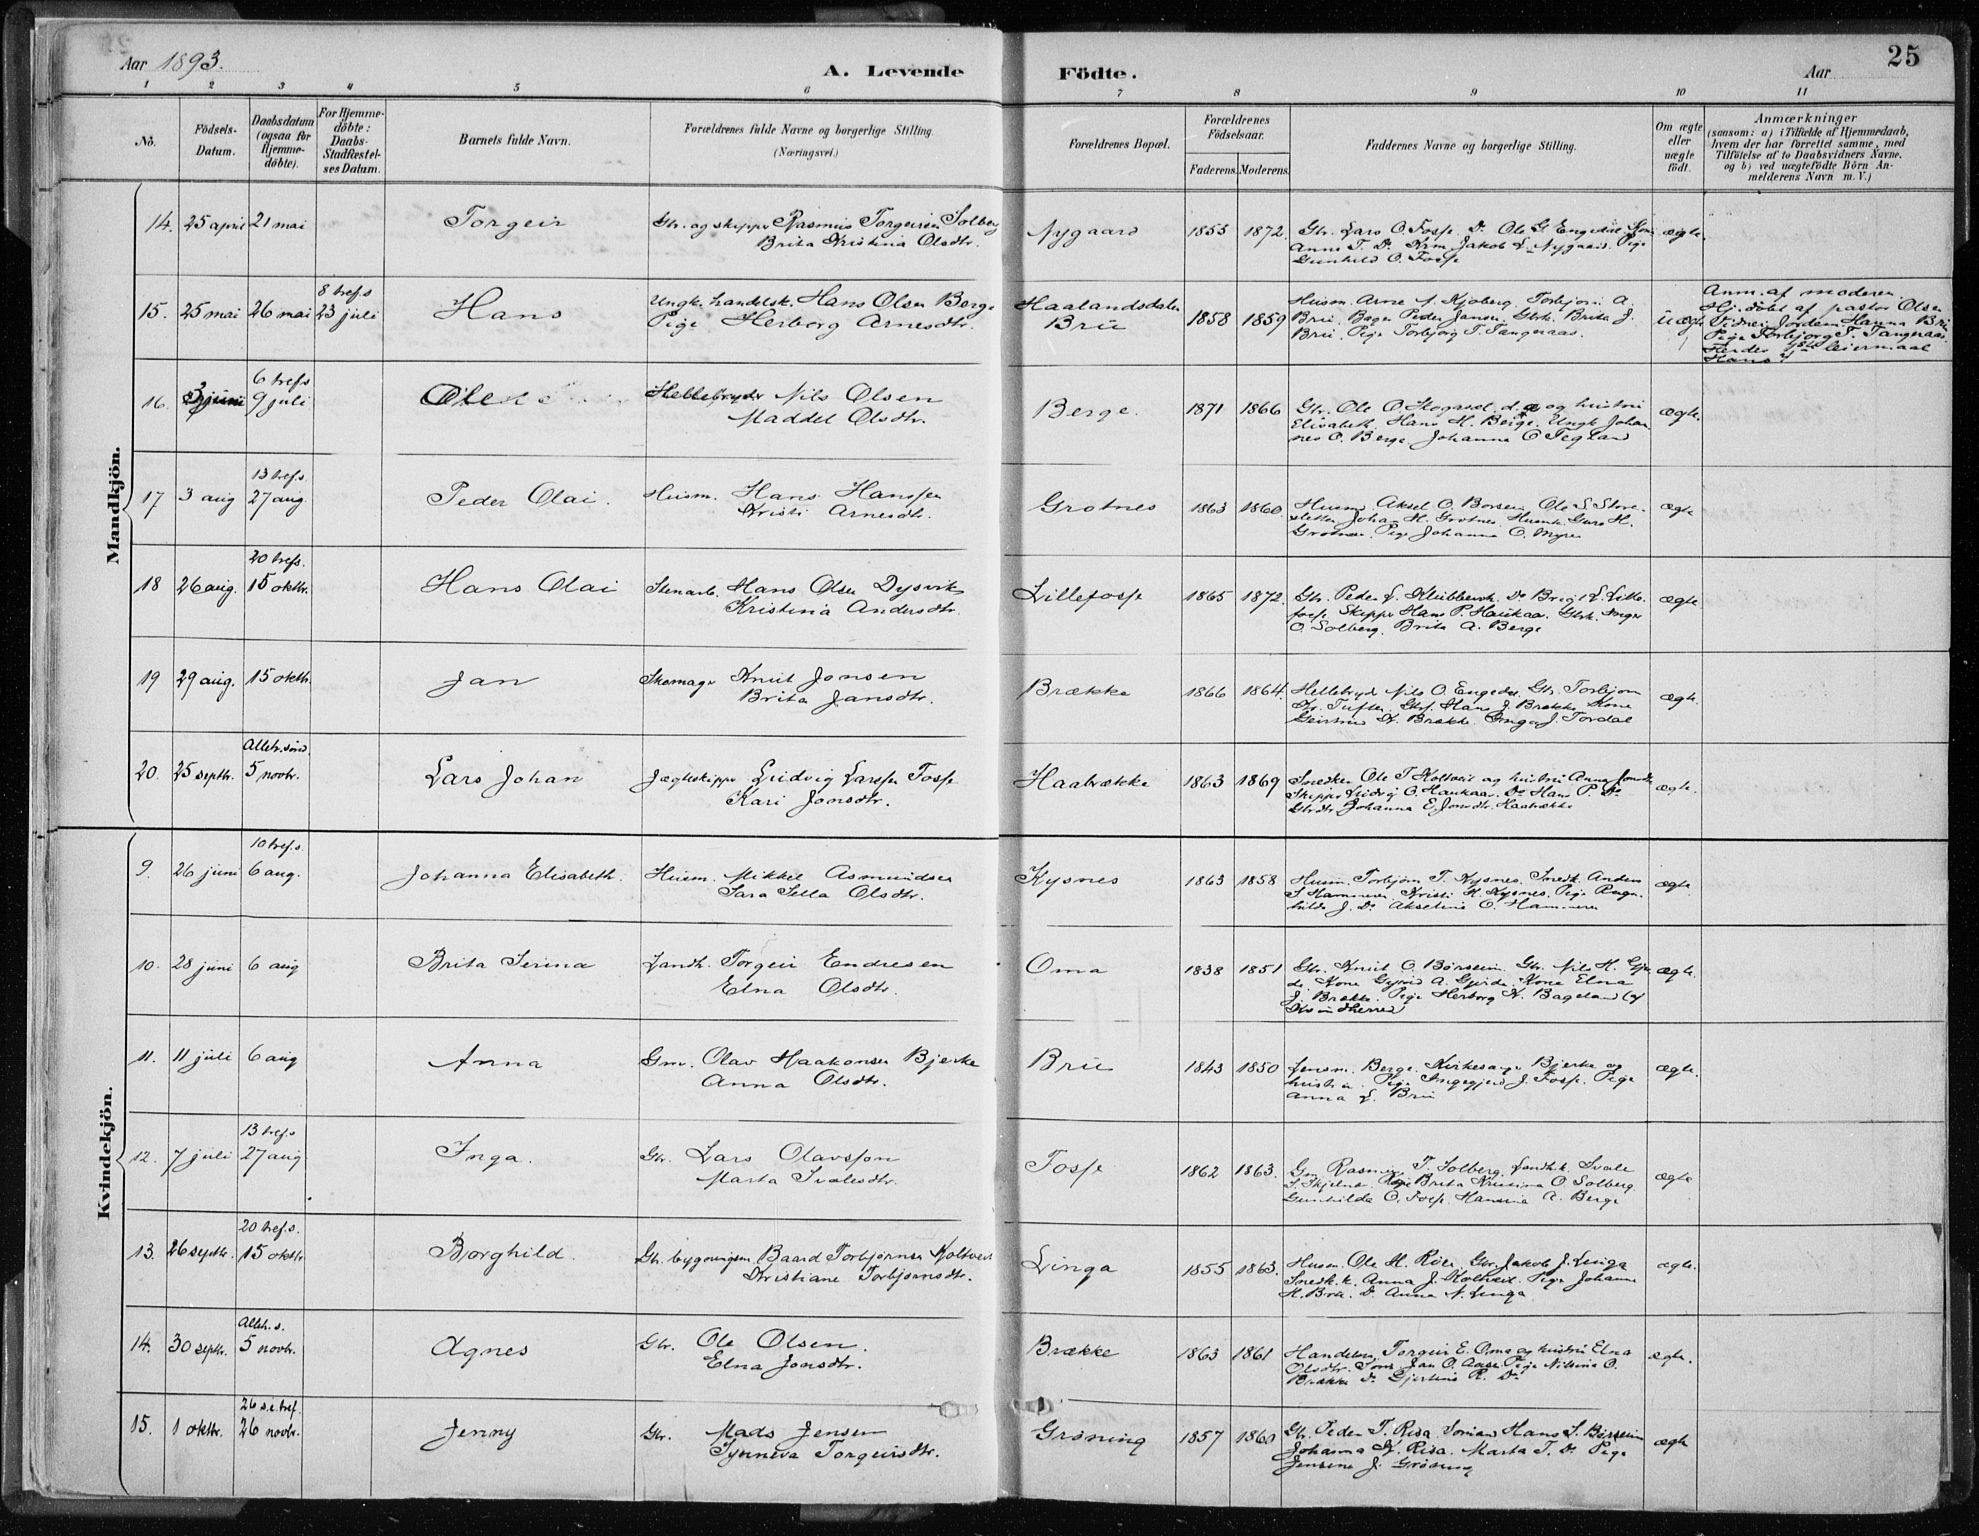 Aar 1893.
A. Levende
Födte.
Aar
25
1 2 3 4 5 6 7 8 9 10 11
No.
Födsels-
Datum.
Daabsdatum
(ogsaa for
Hjemme-
döbte).
For Hjemme-
döbte:
Daabs-
Stadfæstel-
ses Datum.
Barnets fulde Navn.
Forældrenes fulde Navne og borgerlige Stilling.
(Næringsvei.)
Forældrenes Bopæl.
Forældrenes
Födselsaar.
Faderens. Moderens.
Faddernes Navne og borgerlige Stilling.
Om ægte
eller
uægte
födt.
Anmærkninger
(saasom: a) i Tilfælde af Hjemmedaab,
hvem der har forrettet samme, med
Tilföielse af to Daabsvidners Navne,
og b) ved uægtefödte Börn An-
melderens Navn m. V.)
Mandkjön.
14. 25 april 21 mai Torgeir Gbr. og skipper Rasmus Torgeirsen Solberg
Brita Kristina Olsdtr.
Nygaard 1855 1872. Gbr. Lars O. Fosse. Do Ole G. Engedal Kone
Anna T. Do Jakob L. Nygaard. Pige
Gunhild O. Fosse
ægte.
15. 25 mai 26 mai 8 tref.s
23 juli
Hans Ungk. handelsk. Hans Olsen Berge
Pige Herborg Arnesdtr.
Haalandsdalen
Brü
1858 1859 Husm. Arne Kjoberg. Torbjörn A.
Brü. Bager Peder Jansen. Gbrk. Brita J.
Brü. Pige Torbjorg T. Tangeraas.
üægte
Anm. af moderen.
Hj.döbt af pastor Olsen
Vidner: Jordem. Hanna Brü
Pige Torbjorg T. Tangeraas.
leiermaal
16. 3 juni 6 tref.s
9 juli
Ole Hellebryder Nils Olsen
Maddel Olsdtr.
Berge. 1871 1866 Gbr. Ole O. Skogasel og hustru
Elisabeth. Hans H. Berge. Ungk. Johan-
nes O. Berge. Johanna O. Tegland
ægte.
17 3 aug 13 tref.s
27 aug.
Peder Olai. Husm. Hans Hanssen
Kristi Arnesdtr.
Grotnes 1863 1860. Husm. Aksel O. Borsem. Ole S. Store-
sletten Johan H. Grotnes. Husmk. Guro H.
Grotnes. Pige Johanna O. Myre
ægte
18 26 aug. 20 tref.s.
15 oktbr.
Hans Olai Stenarb. Hans Olsen Dysvik
Kristina Andersdtr.
Lillefosse 1865 1872. Gbr. Peder L. Do L. Lille-
fosse. Skipper Hans P. Haukaas. Gbrk. Inger
O. Solberg. Brita A. Berge
ægte
19 29 aug. 15 oktbr. Jan Skomager Knut Jonsen
Brita Jansdtr.
Brække 1866 1864. Hellebryd. Nils O. Engedal. Gbr. Torbjorn
Tufte. Gbs. Hans J. Brække Kone
Geirtrud K. Brække. Inga J. Tordal
ægte.
20. 25 septbr. Alleh. sönd.
5 novbr.
Lars Johan Jægteskipper Ludvig Larssen Fosse
Kari Jonsdtr.
Haabrække 1863 1869 Snedker Ole T. Koltveit og hustru Anna Jonsdtr.
Skipper Ludvig O. Haukaas. Do Hans P. Do
Gbrdtr. Johanna E. Jonsdtr. Haabrække
ægte.
Kvindekjön.
9. 26 juni 10 tref.s.
6 aug.
Johanna Elisabeth. Husm. Mikkel Asmundsen
Sara Sella Olsdtr.
Kysnes 1863 1858 Husm. Torbjörn T. Kysnes. Smedk. Anders
S. Hammeren Kristi M. Kysnes. Pige Ragn-
hilda J. Do Akseline O. Hammeren
ægte
10. 28 juni 6 aug Brita Serina Landh. Torgeir Endresen
Elna Olsdtr.
Oma 1838 1851 Gbr. Knut O. Börsem. Gbr. Nils H. Gjer-
de. Kone Gyrid A. Gjerde. Kone Elna
J. Brække. Pige Herborg K. Bageland (af
Kvindherred)
ægte.
11. 11 juli 6 aug Anna Gm. Olav Haakonsen Bjerke
Anna Olsdtr.
Brü 1843 1850 Lensm. Berge. Kirkesanger Bjerke og
hustru. Pige Ingegjerd J. Fosse. Pige
Anna L. Brü
ægte.
12. 7 juli 13 tref.s
27 aug
Inga. Gbr. Lars Olavsson
Marta Ivalesdtr.
Fosse 1862 1863. Gm. Rasmus T. Solberg. Landhk. Svale
S. Skjelnes. Kone Brita Kristina O. Solberg
Gunhilda O. Fosse. Hansina A. Berge
ægte
13. 26 septbr. 20 tref.s.
15 oktbr
Borghild. Gbr. bygningsm. Baard Torbjørnsen Koltveit
Kristiane Torbjørnsdtr.
Linga 1855 1863. Husm. Ole M. Röen. Gbr. Jakob J. Linga
Snedk.k. Anna J. Koltveit. Pige Johanna
M. Brü. Do Anna N. Linga
ægte.
14. 30 septbr. Alleh. s.
5 novbr.
Agnes Gbr. Ole Olsen.
Elna Jonsdtr.
Brække 1863 1861 Handelsm. Torgeir E. Oma og hustru Elna
Olsdtr. Jan O. Aase. Pige Nilsina O.
Brække Do Gjertine R. Do
ægte.
15. 1 oktbr. 26 s.e.tref.
26 novbr.
Jenny Gbr. Mads Jensen
Synneva Torgeirsdtr.
Gröning 1857 1860 Gbr. Peder T. Risa. Hans S. Börsem
Johanna K. Risa. Marta T. Do Pige
Jensine J. Gröning
ægte